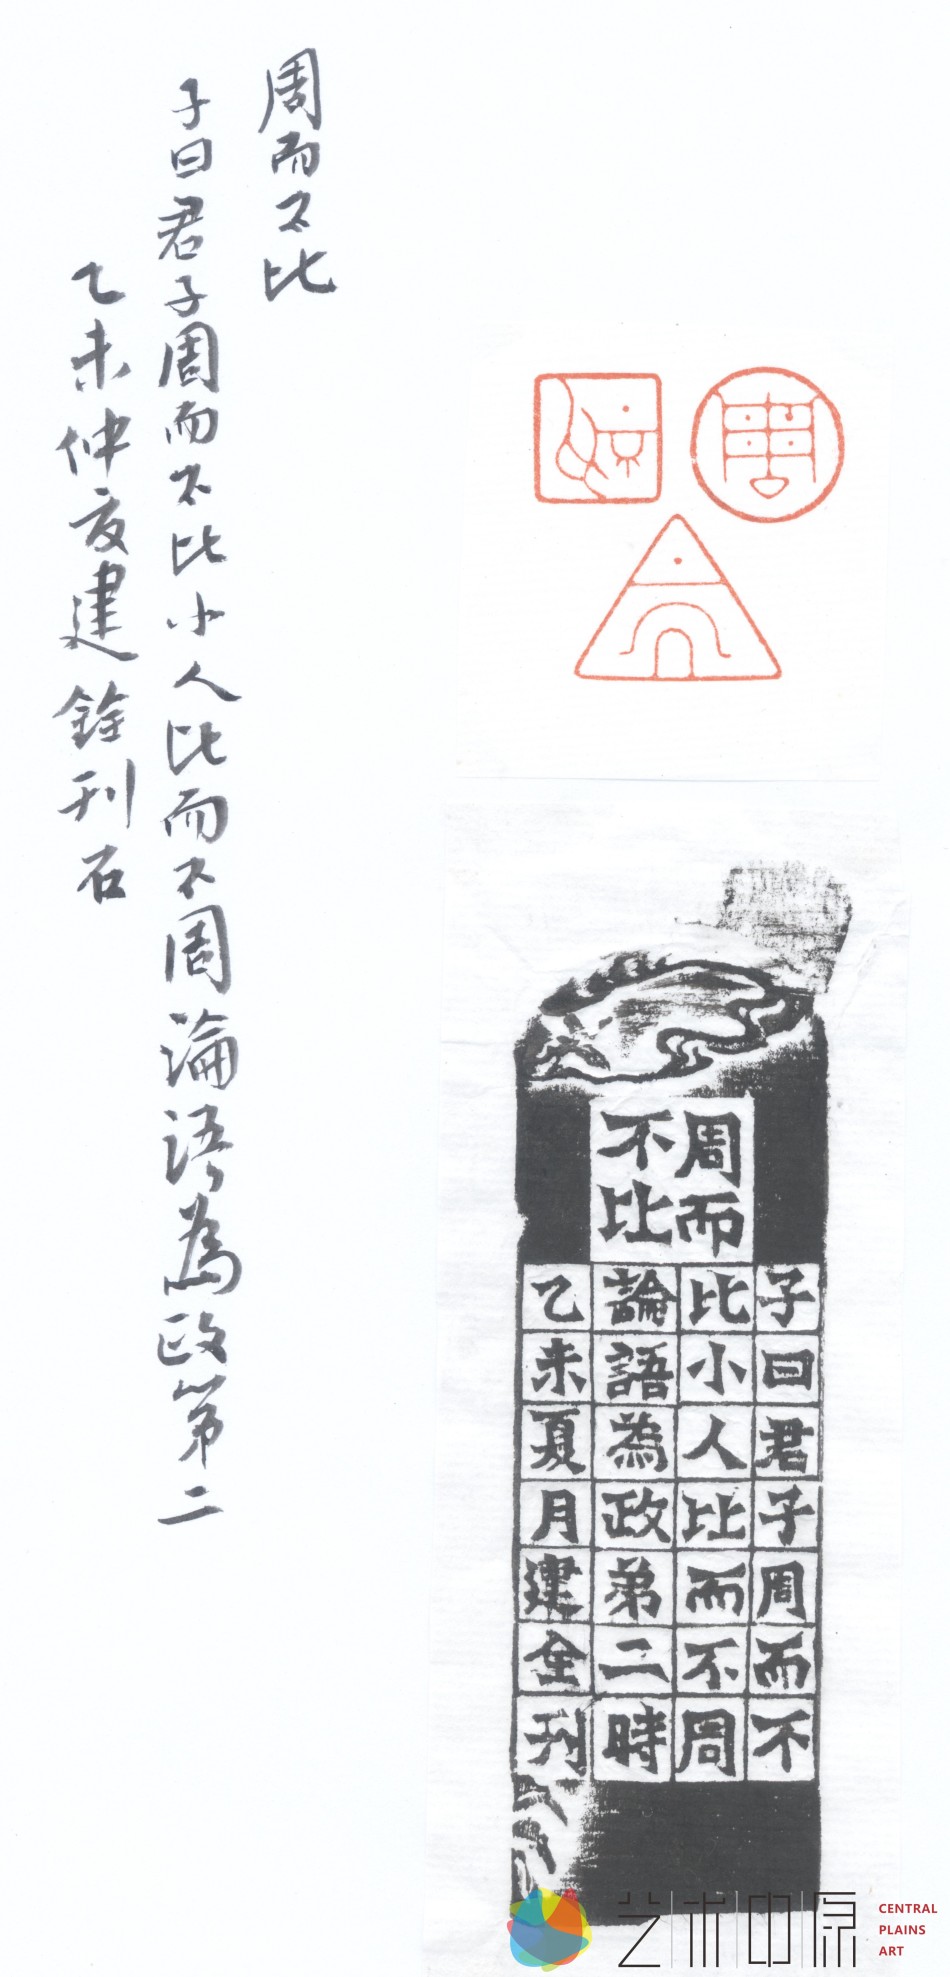 周而不比
子曰君子周而不比小人比而不周論语為政第二
乙未仲夏建銓刊石
周而
不比
子曰君子周而不
比小人比而不周
論語為政弟二時
乙未夏月建全刊
艺术中原
CENTRAL
PLAINS
ART